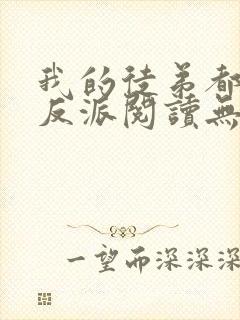 我的徒弟都
反派閱讀無
一望而深深深